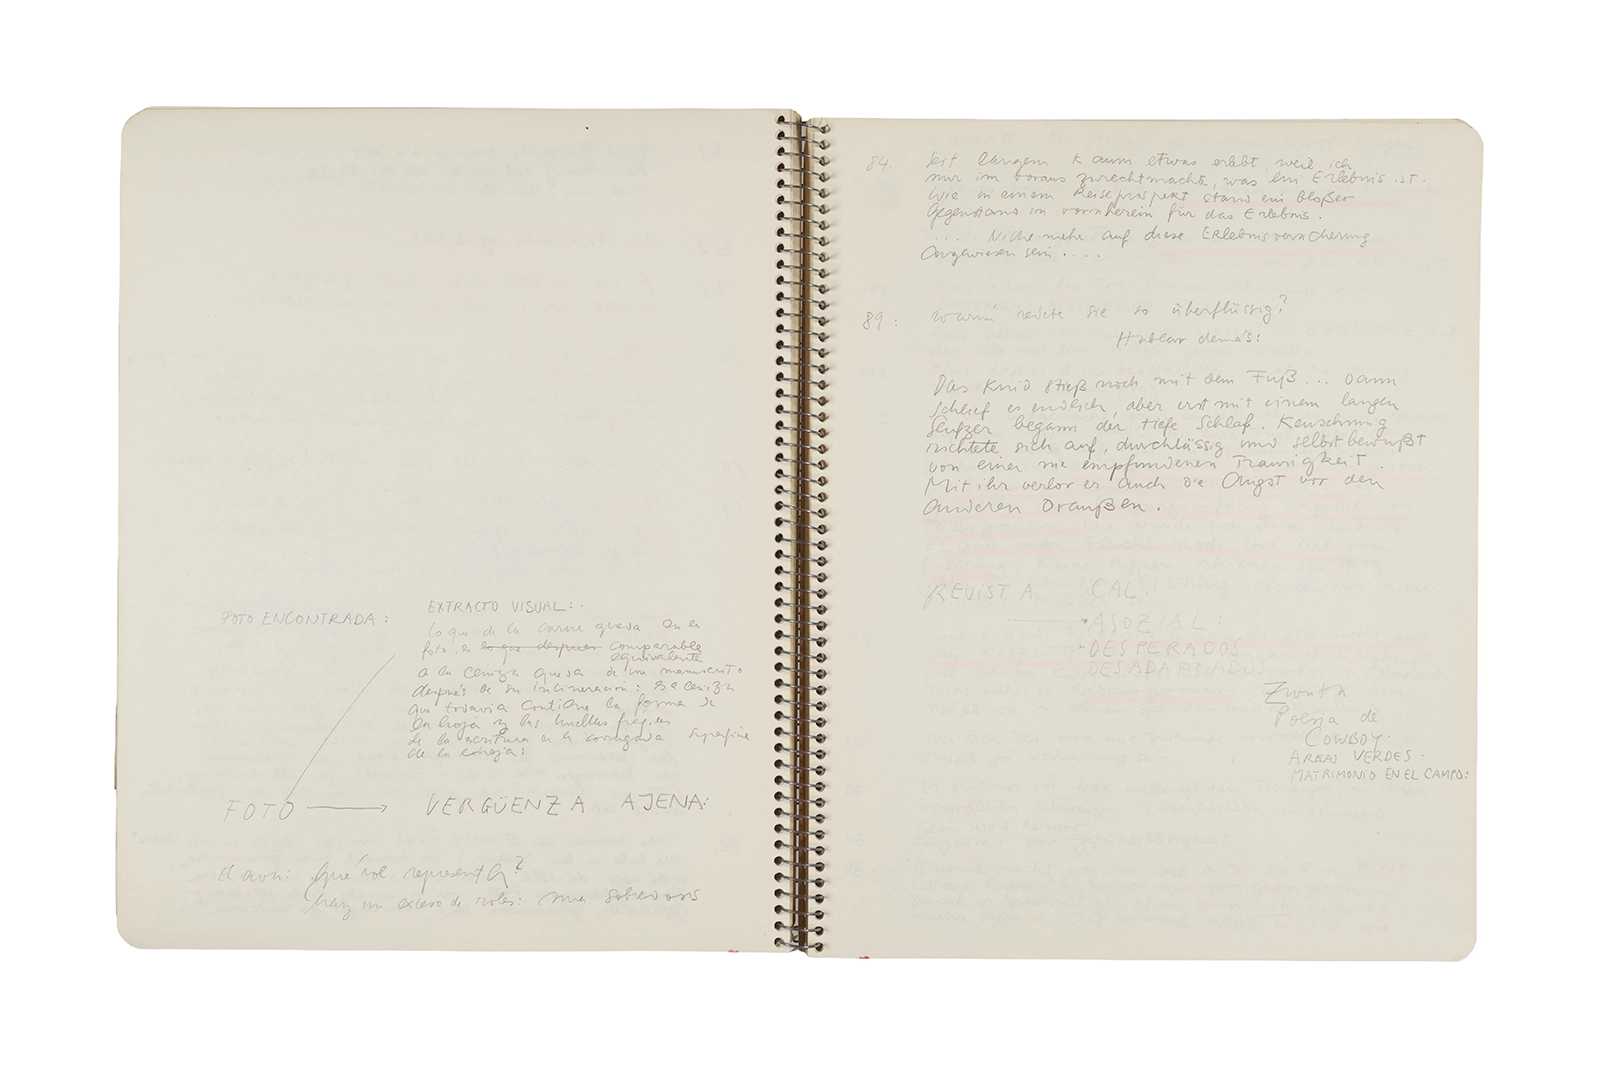 FOTO ENCONTRADA:
EXTRACTO VISUAL:
Lo que de la carne queda en la
foto, es lo que despues comparable
equivalente
a la ceniza queda de un manuscrito
después de su incineracion: esa ceniza
que todavia contiene la forma de
la hoja y las huellas fragiles
de la escritura en la corrugada superficie
de la
FOTO → VERGÜENZA AJENA:
qué rol representa?
hay un exceso de roles: una sobredosis
84. Seit langem kaum etwas erlebt, weil ich
nur im voraus zurechtmachte, was ein Erlebnis ist.
Wie in einem Reiseprospekt stand ein bloßer
Gegenstand in vornherein für das Erlebnis.
.... Nicht mehr auf diese Erlebnisversicherung
angewiesen sein ....
89: Warum redete sie so überflüssig?
Hablar demás:
Das Kind stieß noch mit dem Fuß... Dann
schlief es endlich, aber erst mit einem langen
Seufzer begann der tiefe Schlaf. Keuschnig
richtete sich auf, durchlässig und selbstbewußt
von einer nie empfundenen Traurigkeit.
Mit ihr verlor er auch die Angst vor den
anderen Draußen.
REVISTA CAL.
ASOZIAL:
DESPERADOS
DESADAPTADOS
Zurita
Poesía de
COWBOY:
AREAS VERDES.
MATRIMONIO EN EL CAMPO: